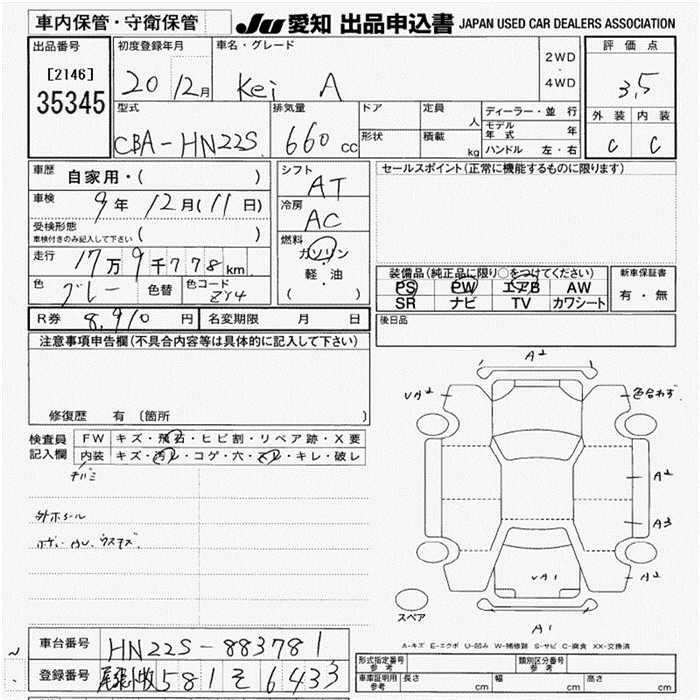 車内保管・守衛保管
JU 愛知 出品申込書 JAPAN USED CAR DEALERS ASSOCIATION
出品番号 [2146] 35345
初度登録年月 20 12月
車名・グレード Kei A
2WD・4WD
評価点 3,5
外装 C 内装 C
型式 CBA-HN22S
排気量 660 cc
ドア 形状
定員 人 積載 kg
ディーラー・並行
モデル年式 年
ハンドル 左・右
車歴 自家用・( )
車検 9年 12月(11日)
受検形態 車検付きのみ記入して下さい ( )
走行 17万9千778km
色 グレー 色替 色コード ZY4
シフト AT
冷房 AC
燃料 ガソリン・軽・油 ( )
R券 8,910円 名変期限 月 日
セールスポイント(正常に機能するものに限ります)
装備品(純正品に限り○をつけてください)
PS PW エアB AW
SR ナビ TV カワシート
新車保証書 有・無
後日品
注意事項申告欄(不具合内容等は具体的に記入して下さい)
修復歴 有 (箇所 )
検査員記入欄
FW キズ・飛石・ヒビ割・リペア跡・X要
内装 キズ・汚レ・コゲ・穴・スレ・キレ・破レ
外ホール
A2
色合わず
A2
A3
A2
UA1
A1
スペア
A-キズ E-エクボ U-凹み W-補修跡 S-サビ C-腐食 XX-交換済
車台番号 HN22S-883781
登録番号 尾張小牧 581 そ 6433
形式指定番号 参考 類別区分番号 参考
車庫証明用 参考 長さ cm 幅 cm 高さ cm